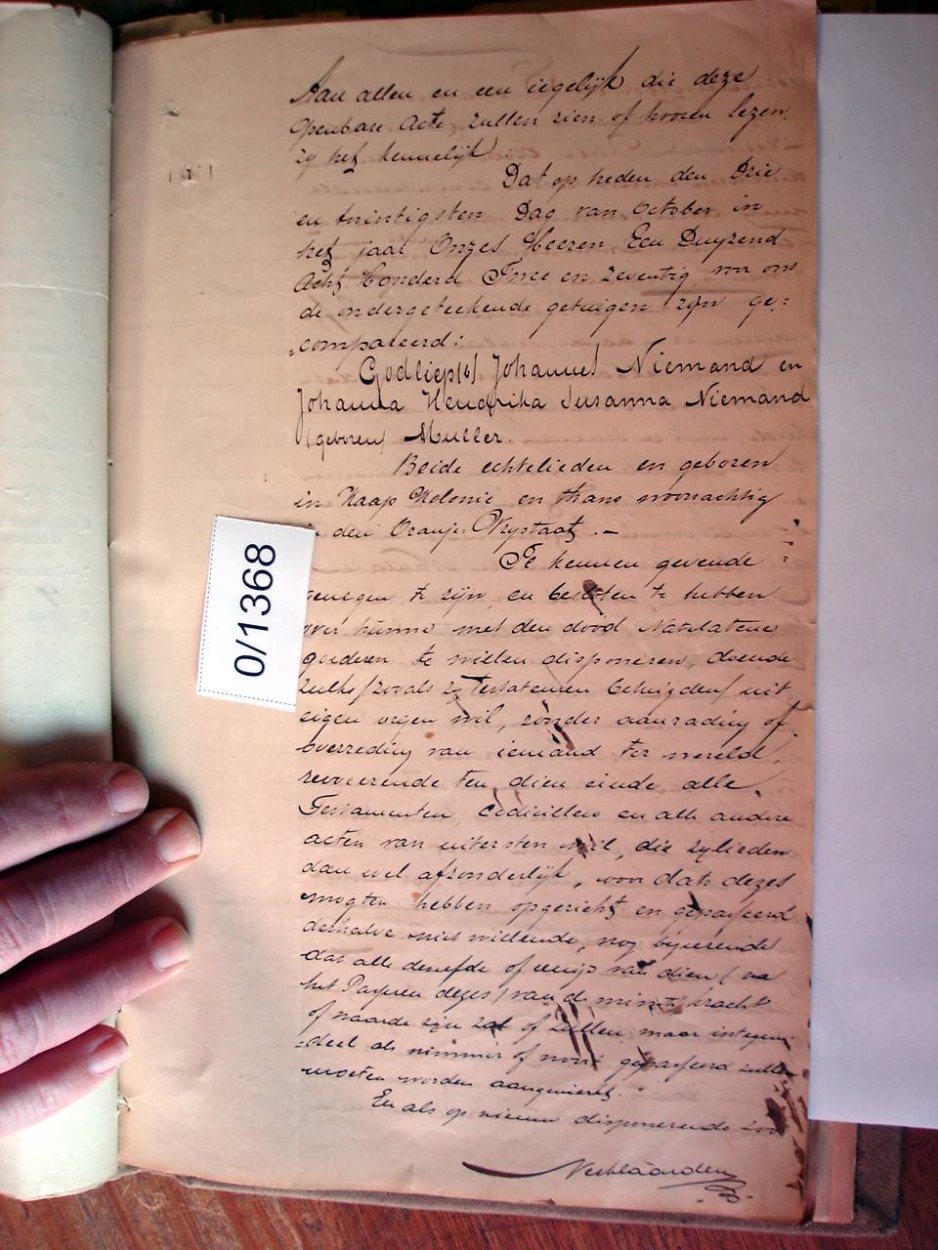 Aan allen en een iegelijk die deze
Openbare Acte, zullen zien of hooren lezen
zy het kennelijk.
Dat op heden den Drie
en twintigsten Dag van October in
het jaar Onzes Heeren Een Duyzend
Acht Honderd Twee en zeventig voor ons
de ondergeteekende getuigen zijn ge:
compareerd:
Godliep Johannes Niemand en
Johanna Hendrika Susanna Niemand
(geboren) Muller.
Beide echtelieden en geboren
in Kaap Kolonie en thans woonachtig
in den Oranje Vrystaat. —
Te kennen gevende
genegen te zijn, en besloten te hebben
over hunne met den dood Natelatene
goederen te willen disponeren, doende
zulks / zooals zy Testateuren betuigden / uit
eigen vryen wil, zonder aanrading of
overreding van iemand ter wereld,
revoceerende ten dien einde, alle
Testamenten, Codicillen en alle andere
acten van uitersten wil, die zylieden
dan wel afzonderlijk, voor dato dezes
mogten hebben opgericht en gepasseerd
deshalve niet willende, nog begeerende
dat alle dezelfde of eenige van dien / na
het Passeren dezes / van de minste kracht
of waarde zijn zal of zullen maar integen:
:deel als nimmer of nooit gepasseerd zullen
moeten worden aangemerkt.
En als op nieuw disponerende zoo
0/1368